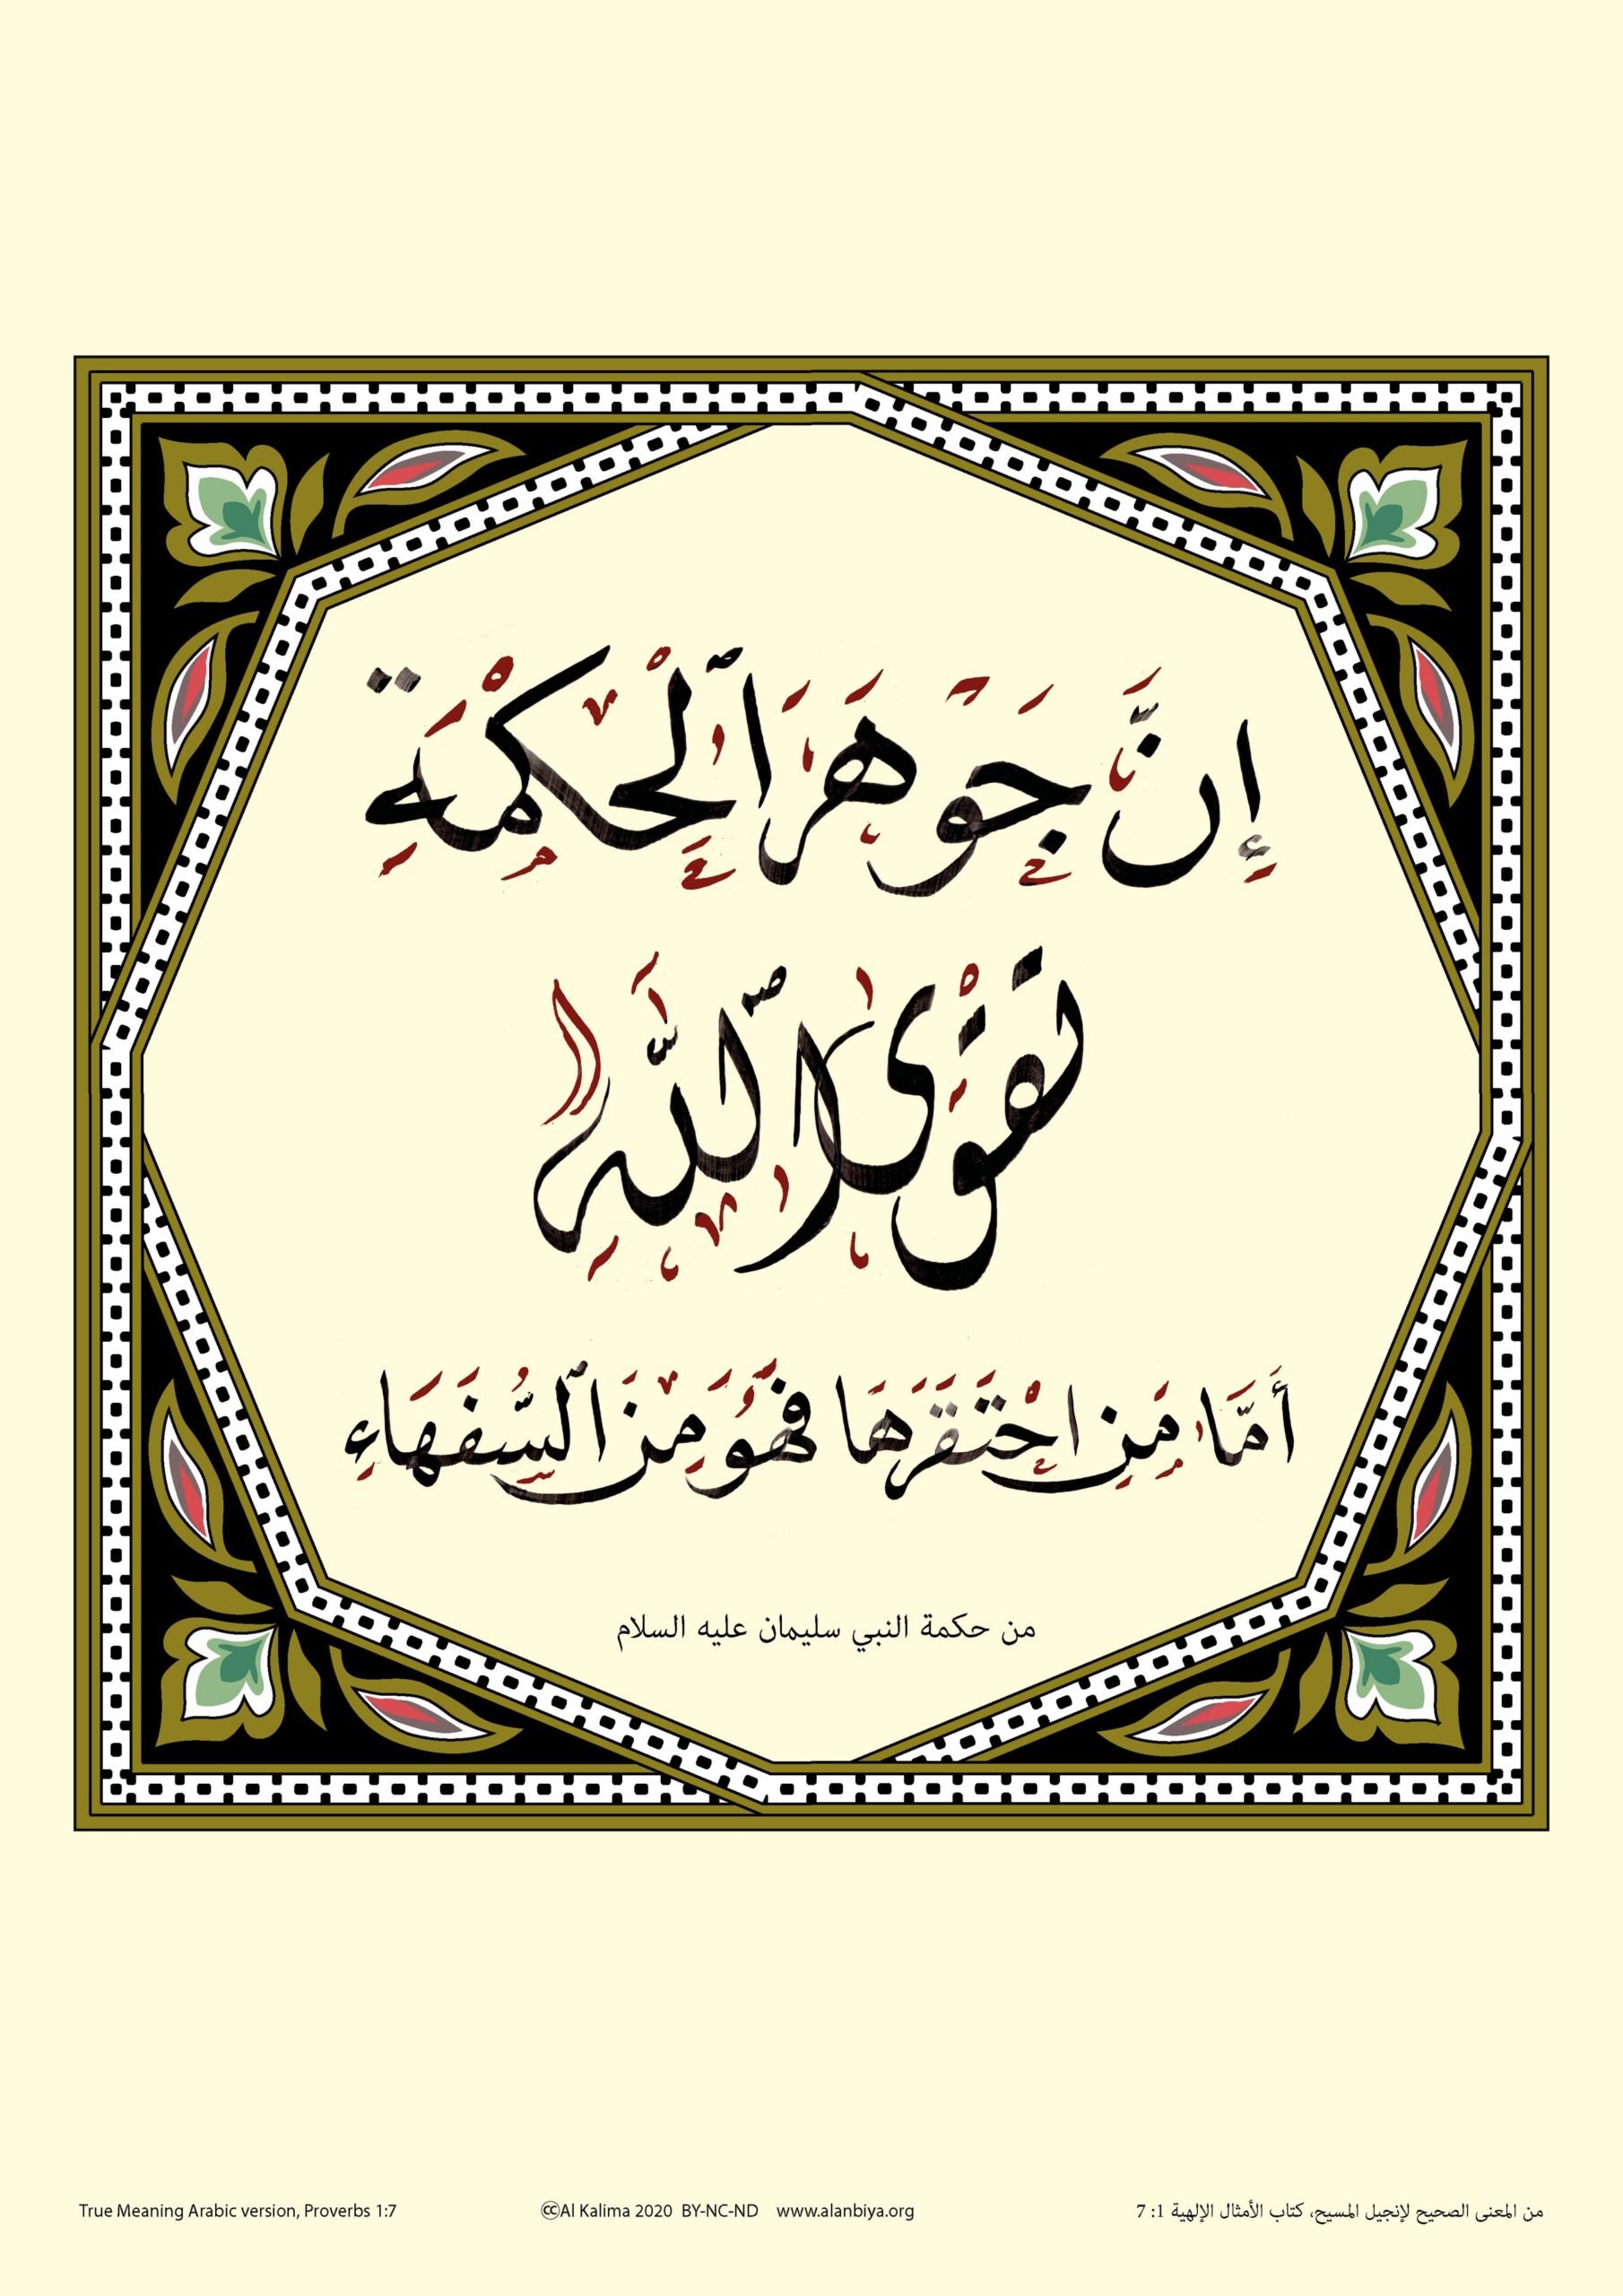 إِنَّ جَوْهَرَ ٱلْحِكْمَةِ
تَقْوَى ٱللَّهِ
أَمَّا مَنِ احْتَقَرَهَا فَهُوَ مِنَ ٱلسُّفَهَاءِ
من حكمة النبي سليمان عليه السلام
True Meaning Arabic version, Proverbs 1:7
🄭Al Kalima 2020 BY-NC-ND www.alanbiya.org
من المعنى الصحيح لإنجيل المسيح، كتاب الأمثال الإلهية 1: 7